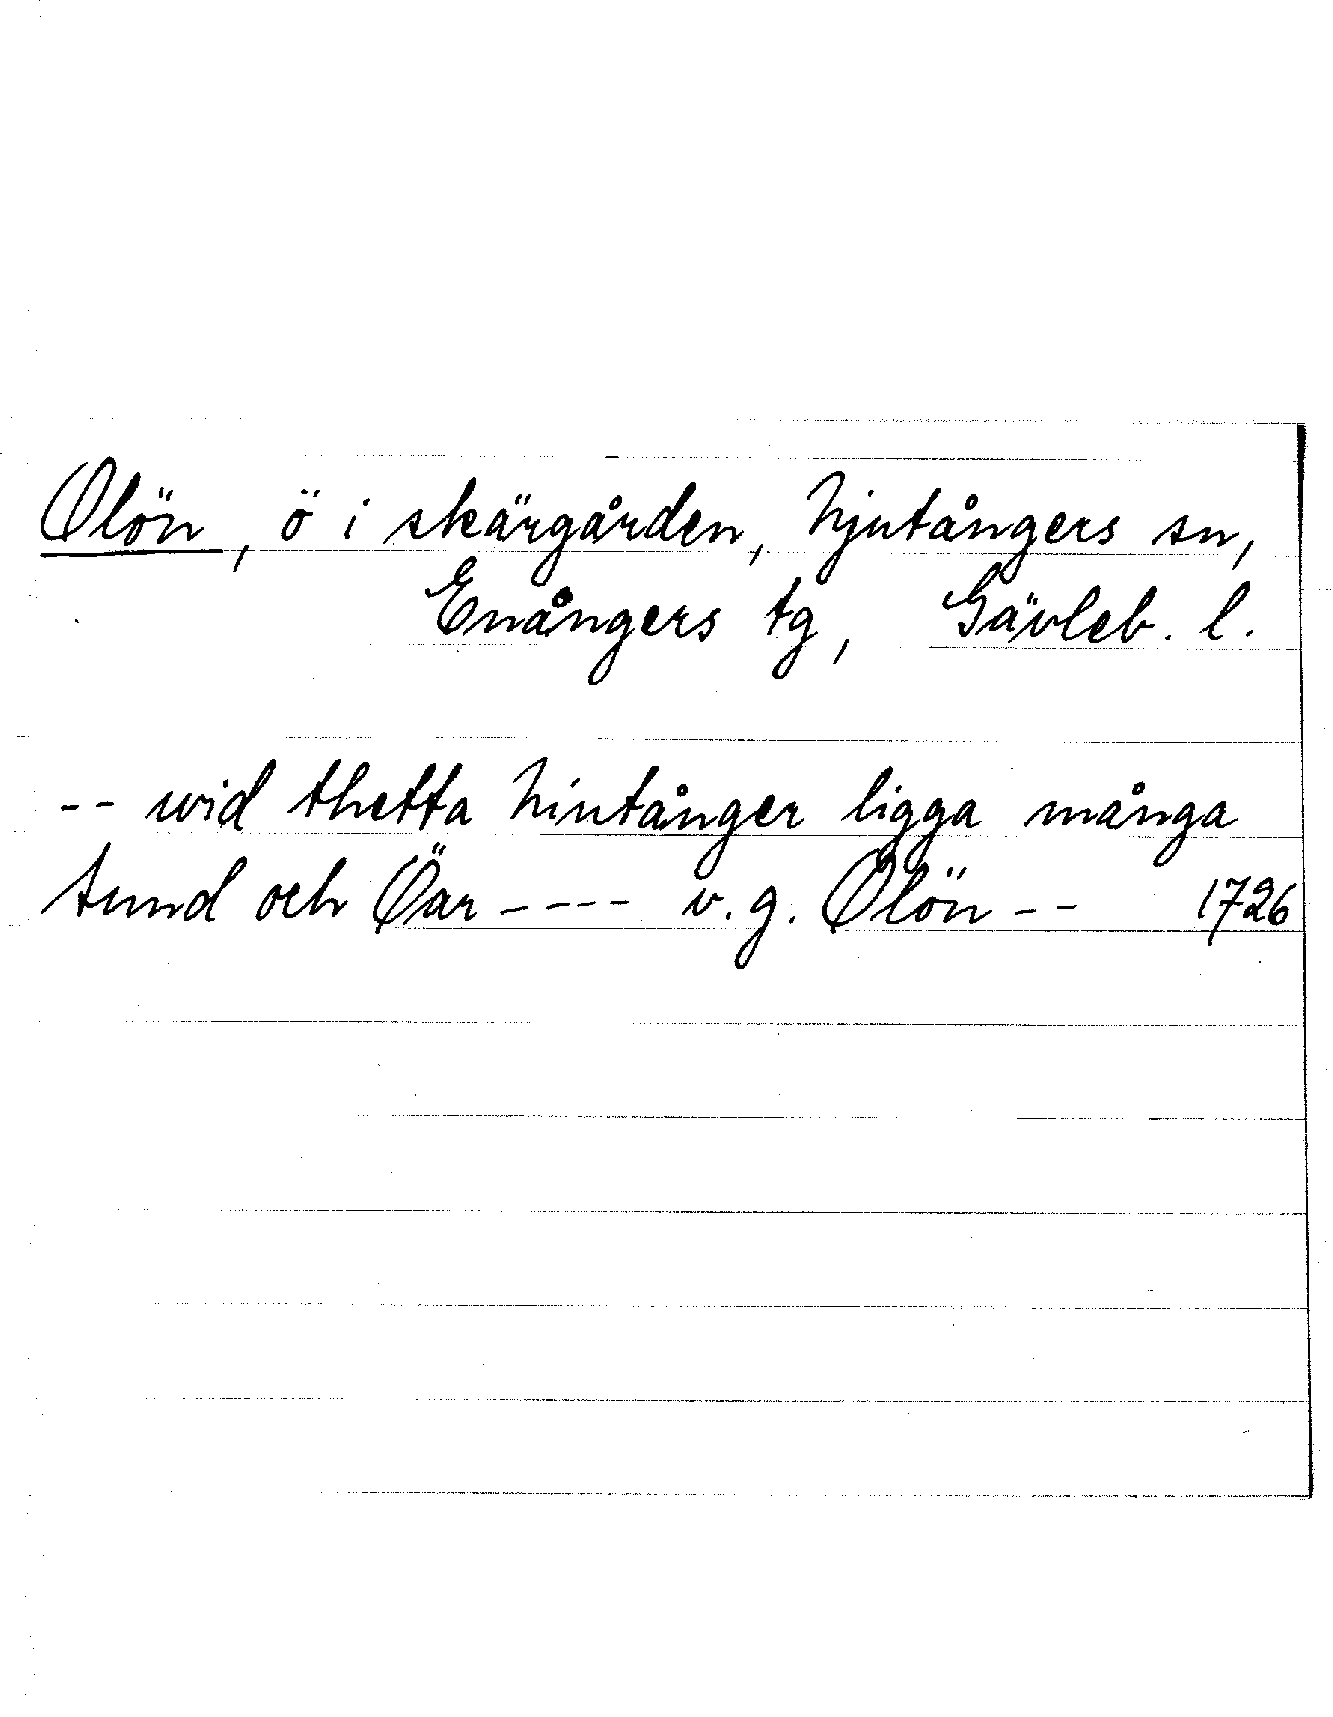 Olön, ö i skärgården, Njutångers sn,
Enångers tg, Gävleb. l.
-- wid thetta Niutånger ligga många
sund och Öar ---- v.g. Olön -- 1726